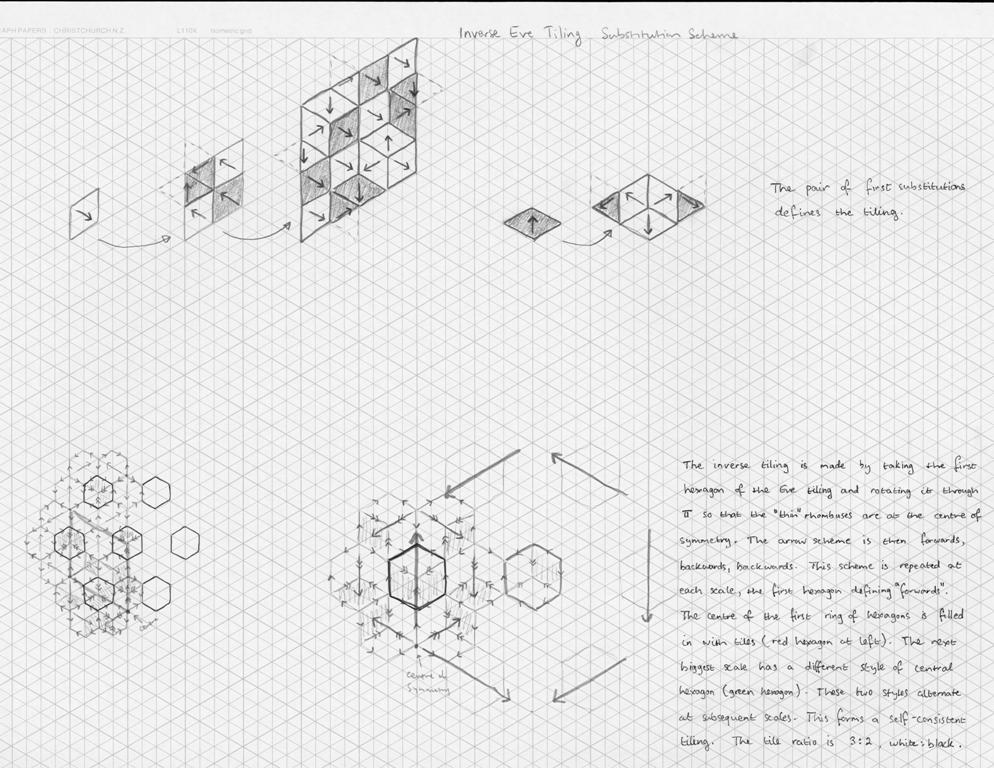 APH PAPERS . CHRISTCHURCH N.Z. L110K Isometric grid
Inverse Eve Tiling - Substitution Scheme
The pair of first substitutions
defines the tiling.
The inverse tiling is made by taking the first
hexagon of the Eve tiling and rotating it through
π so that the "thin" rhombuses are at the centre of
symmetry. The arrow scheme is then forwards,
backwards, backwards. This scheme is repeated at
each scale, the first hexagon defining "forwards".
The centre of the first ring of hexagons is filled
in with tiles (red hexagon at left). The next
biggest scale has a different style of central
hexagon (green hexagon). These two styles alternate
at subsequent scales. This forms a self-consistent
tiling. The tile ratio is 3:2, white:black.
centre of
Symmetry